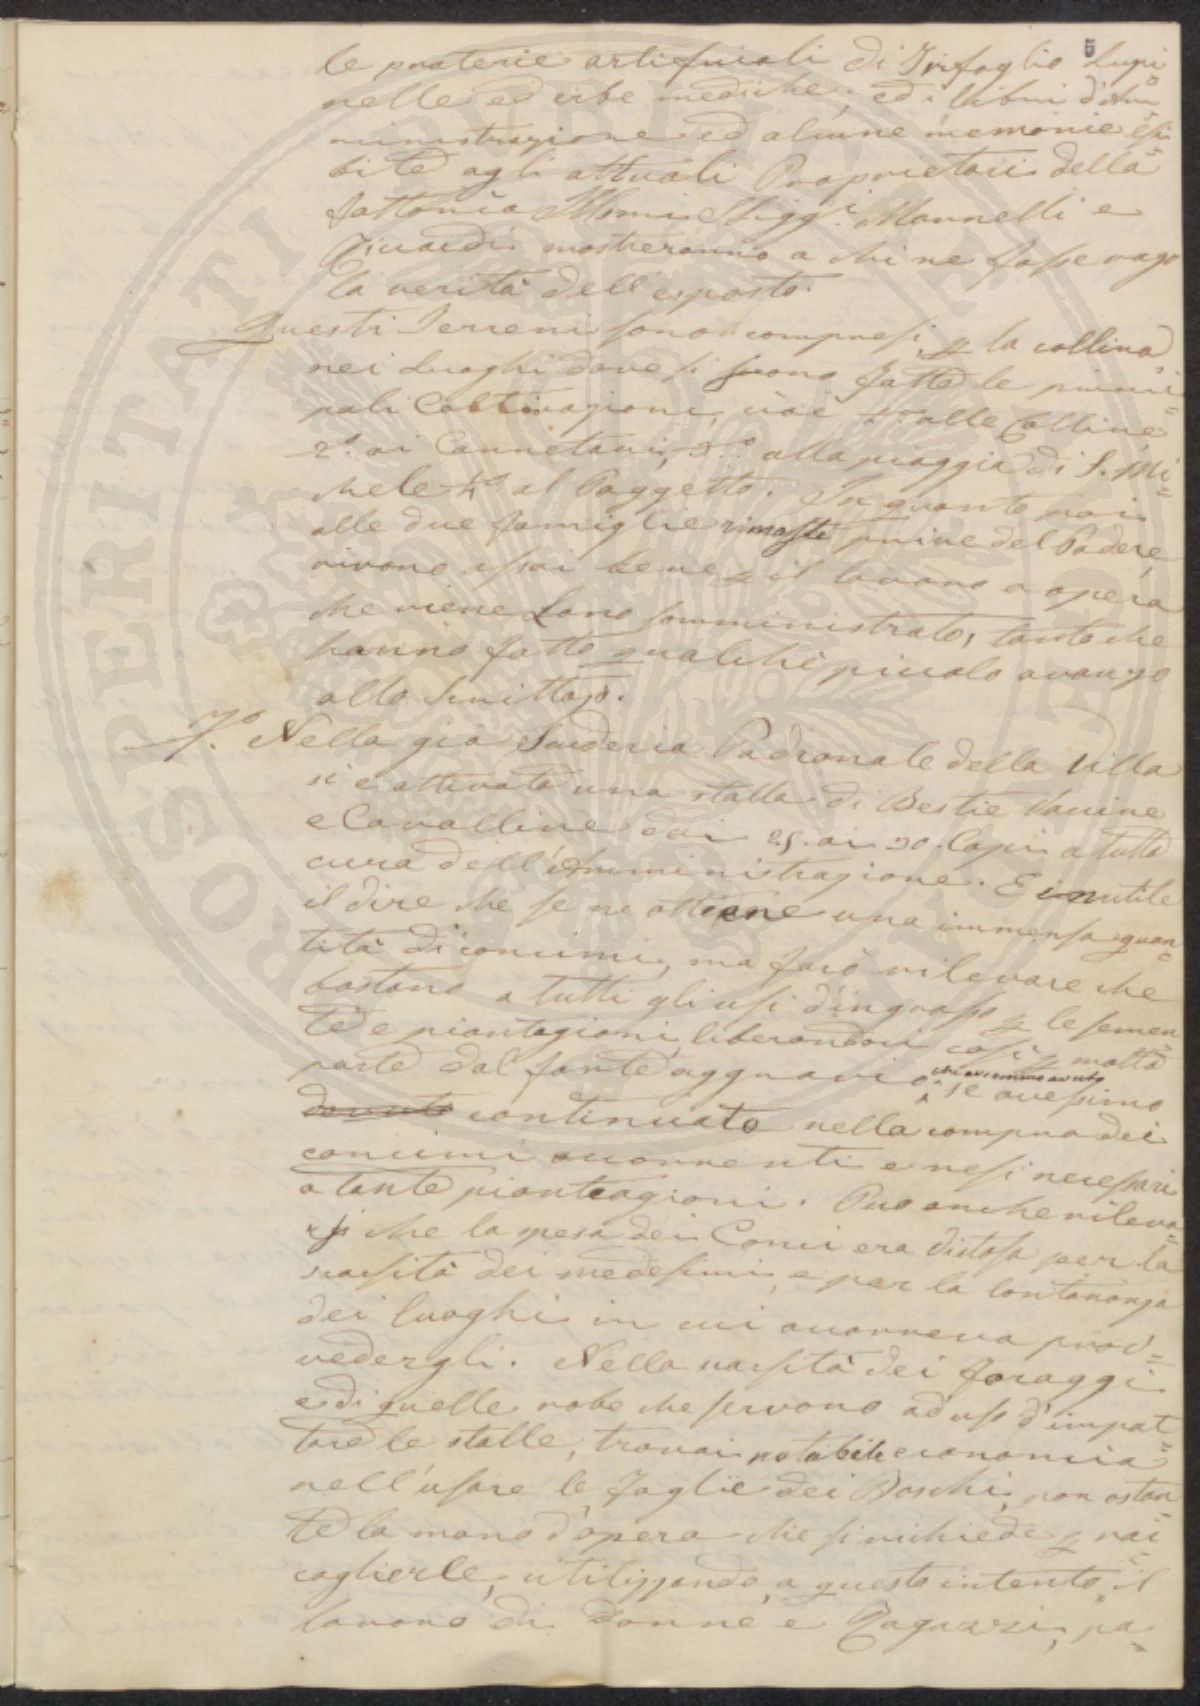 le praterie artificiali di Trifoglio Lupi=
nelle ed erbe mediche; ed i libri d'Am=
ministrazione ed alcune memorie esi=
bite agli attuali Proprietari della
fattoria Illmi Sigg.i Mannelli e
Ricardi mostreranno a chi ne fosse vago
la verità dell'esposto.
Questi Terreni sono compresi p la collina
nei Luoghi dove si sono fatte le princi=
pali Coltivazioni, cioè 1.o alle Colline
2.o ai Cannetani, 3.o alla piaggia di S. Mi=
chele 4.o al Poggetto. In quanto poi
alle due famiglie rimaste prive del Podere,
vivono assai bene p il lavoro a opera
che viene Loro somministrato, tanto che
hanno fatto qualche piccolo avanzo
allo Scrittojo.
7.o Nella già Scuderia Padronale della Villa
si è attivata una stalla di Bestie Vaccine
e Cavalline dai 25. ai 30. Capi a tutta
cura dell'Amministrazione. E inutile
il dire che se ne ottiene una immensa quan=
tità di concimi, ma farò rilevare che
bastano a tutti gli usi d'ingrasso p le semen=
te e piantagioni, liberandoci così p molta
parte dal forte aggravio che avremmo avuto se avessimo
dovuto continuato nella compra dei
concimi occorrenti e resi necessari
a tante piantagioni. Può anche rileva=
rsi che la presa dei Conci era distosa per la
scarsità dei medesimi, e per la lontananza
dei luoghi in cui occorreva prov=
vedergli. Nella scarsità dei foraggi
e di quelle robe che servono ad uso d'impat=
tare le stalle, trovai notabile economia
nell'usare le foglie dei Boschi, non ostan=
te la mano d'opera che si richiede p rac=
coglierle, utilizzando a questo intento il
lavoro di Donne e Ragazzi, pa=